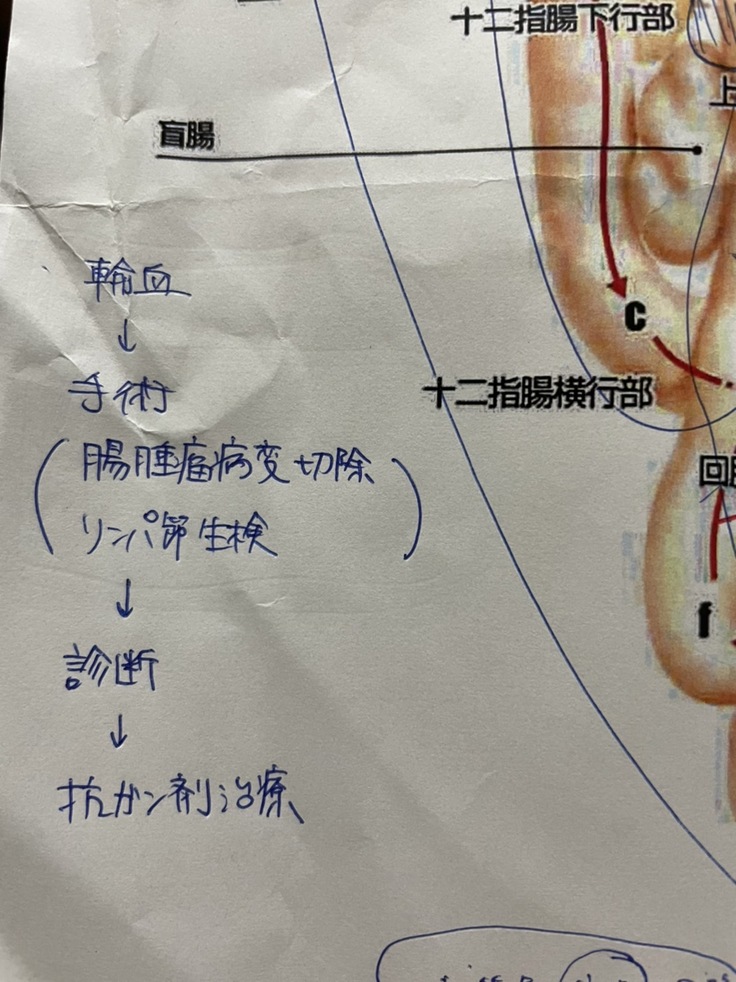 十二指腸下行部
上
盲腸
輸血
↓
c
手術
十二指腸横行部
(腸腫瘤病変切除
リンパ節生検)
回腸
↓
f
診断
↓
抗ガン剤治療